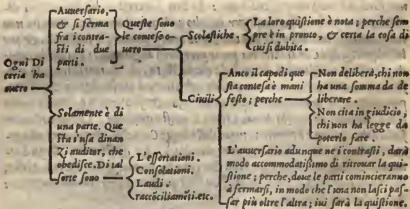 Ogni Di
ceria ha
ouero
Auuersario,
& si ferma
fra i contra-
sti di due
parti.
Queste sono
le contese o-
uero
Scolastiche.
La loro quistione è nota; perche sem
pre è in pronto, & certa la cosa di
cui si dubita.
Ciuili
Anco il capo di que
sta contesa è mani
festo; perche
Non delibera, chi non
ha una somma da de
liberare.
Non cita in giudicio,
chi non ha legge da
poterlo fare.
L'auuersario adunque ne i contrasti, darà
modo accommodatissimo di ritrouar la qui-
stione; perche, doue le parti comincieranno
à fermarsi, in modo che l'una non lasci pas-
sar più oltre l'altra; iui sarà la quistione.
Solamente è di
una parte. Que
sta s'usa dinan
Zi auditor, che
obedisce. Di tal
sorte sono
L'essortationi.
Consolationi.
Laudi.
raccōciliamēti.etc.